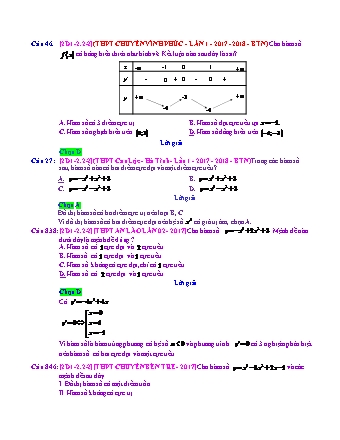 Câu 46: [2D1-2.2-2] (THPT CHUYÊN VĨNH PHÚC - LẦN 1 - 2017 - 2018 - BTN) Cho hàm số
có bảng biến thiên như hình vẽ. Kết luận nào sau đây là sai?
x -∞ -1 0 1 +∞
y' - 0 + 0 - 0 +
y +∞ -4 -3 -4 +∞
A. Hàm số có 3 điểm cực trị. B. Hàm số đạt cực tiểu tại
C. Hàm số nghịch biến trên D. Hàm số đồng biến trên
Lời giải
Chọn D
Câu 27: [2D1-2.2-2] (THPT Can Lộc - Hà Tĩnh - Lần 1 - 2017 - 2018 - BTN) Trong các hàm số
sau, hàm số nào có hai điểm cực đại và một điểm cực tiểu?
A. B.
C. D.
Lời giải
Chọn A
Đồ thị hàm số có ba điểm cực trị nên loại B, C
Vì đồ thị hàm số có hai điểm cực đại nên hệ số có giá trị âm, chọn A.
Câu 838: [2D1-2.2-2] [THPT AN LÃO LẦN 02 - 2017] Cho hàm số Mệnh đề nào
dưới đây là mệnh đề đúng?
A. Hàm số có cực đại và cực tiểu
B. Hàm số có cực đại và cực tiểu
C. Hàm số không có cực đại, chỉ có cực tiểu
D. Hàm số có cực đại và cực tiểu
Lời giải
Chọn D
Có
Vì hàm số là hàm trùng phương có hệ số và phương trình có 3 nghiệm phân biệt
nên hàm số có hai cực đại và một cực tiểu
Câu 846: [2D1-2.2-2] [THPT CHUYÊN BẾN TRE - 2017] Cho hàm số và các
mệnh đề sau đây
I. Đồ thị hàm số có một điểm uốn
II. Hàm số không có cực trị